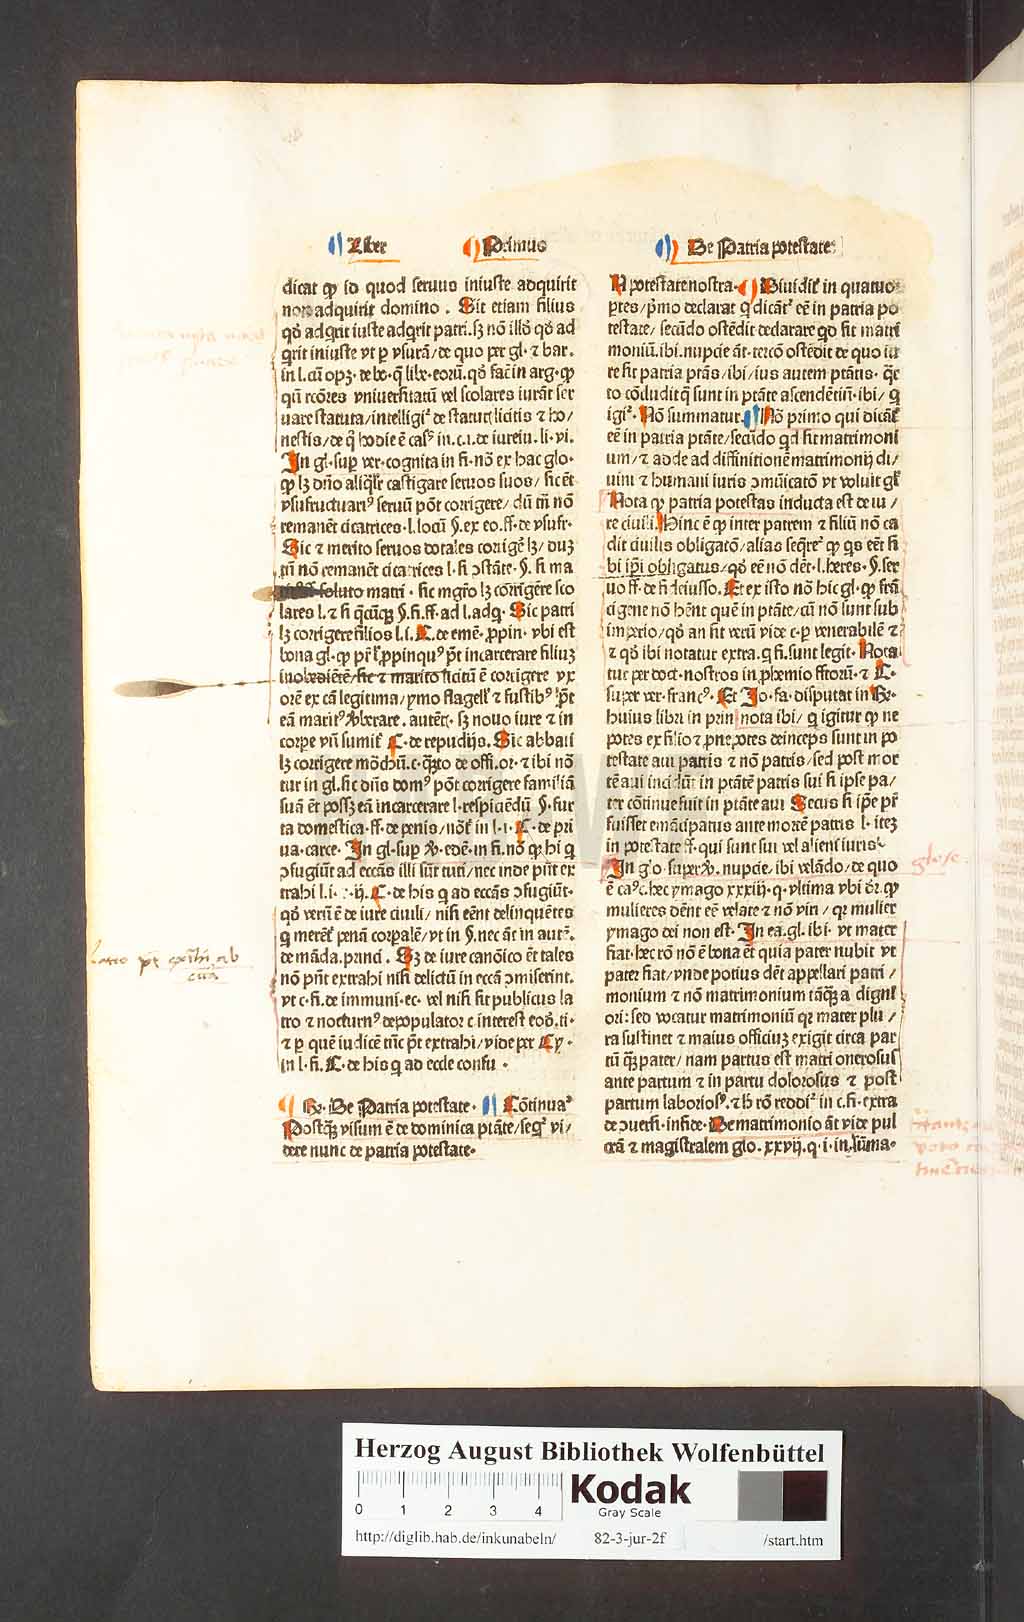 Liber Primus De Patria potestate
dicat ꝙ id quod seruus iniuste adquirit
non adquirit domino . Sit etiam filius
qď adqrit iuste adqrit patri. sꝫ nō illď qď ad
qrit iniuste vt p vsurā/ de quo per gl. ⁊ bar.
in l. cū opꝫ. de bo. q̄ libe. eorū. qď facit in arg. ꝙ
qn̄ rcōres vniuersitatū vel scolares iurāt ser
uare statuta/ intelligit̉ de statut licitis ⁊ ho/
nestis/ de q̄ hodie ē casꝰ in. c. i. de iureiu. li. vi.
In gl. sup ver. cognita in fi. nō ex hac glo.
ꝙ lꝫ dn̄o castigare seruos suos/ sic ēt
vsufructuariꝰ seruū pōt corrigere/ dū tn̄ nō
remanēt cicatrices. l. locū §. ex eo. ff. de vsufr.
Sic ⁊ merito seruos dotales corrigē lꝫ/ duꝫ
tn̄ nō remanēt cicatrices l. si ↄstāte. §. si ma
soluto matri. sic mgrō lꝫ corrigere sco
lares l. ⁊ si q̄cūqꝫ §. fi. ff. ad l. adq. Sic patri
lꝫ corrigere filios l. i. C. de emē. ꝓpin. vbi est
bona gl. ꝙ pr̄ ꝓpinquꝰ pōt incarcerare filiuꝫ
inobediētē/ sic ⁊ marito licitū ē corrigere vx
orē ex cā legitima/ ymo flagell ⁊ fustibꝰ pōt
eā maritꝰ v̄berare. autēt. sꝫ nouo iure ⁊ in
corpe vn̄ sumit̉ C. de repudijs. Sic abbati
lꝫ corrigere mōchū. c. q̄sto de offi. or. ⁊ ibi nō
tur in gl. sic dn̄s domꝰ pōt corrigere familiā
suā ēt possꝫ eā incarcerare l. respiciēdū §. fur
ta domestica. ff. de penis/ nōt̉ in l. i. C. de pri
ua. carce. In gl. sup v̄. edē. in fi. nō ꝙ hi q
ↄfugiūt ad eccās illi sūt tuti/ nec inde pn̄t ex
trahi l. i. ⁊. ij. C. de his q ad eccās ↄfugiūt.
qď verū ē de iure ciuili/ nisi eēnt delinquētes
q merēt̉ penā corpalē/ vt in §. nec āt in aut̄.
de māda. princi. Sꝫ de iure canōico ēt tales
nō pn̄t extrahi nisi delictū in eccā ↄmiserint.
vt c. fi. de immuni. ec. vel nisi sit publicus la
tro ⁊ nocturnꝰ depopulator c. interest eoď. ti.
⁊ p quē iudicē tūc pn̄t extrahi/ vide per Cy.
in l. fi. C. de his q ad eccle confu .
Rx. De Patria potestate. Cōtinuaꝰ
Postqꝫ visum ē de dominica ptāte/ seqr̉ vi/
dere nunc de patria potestate.
N potestate nostra. Diuidit̉ in quatuor
ptes/ pͥmo declarat q dicāt̉ eē in patria po
testate/ secūdo ostēdit declarare qď sit matri
moniū. ibi. nupcie āt. tercō ostēdit de quo iu
re sit patria ptās/ ibi/ ius autem ptātis. q̄r
to cōcludit q̄ sunt in ptāte ascendētiū. ibi/ q
igit̉. Nō summatur. Nō primo qui dicāt̉
eē in patria ptāte/ secūdo qd sit matrimoni
um/ ⁊ adde ad diffinitionē matrimonij di/
uini ⁊ humani iuris ↄmūicatō vt voluit gl̄
Nota ꝙ patria potestas inducta est de iu /
re ciuili. Hinc ē ꝙ inter patrem ⁊ filiū nō ca
dit ciuilis obligatō/ alias seqret̉ ꝙ qs eēt si
bi ip̄i obligatus/ qď eē nō dēt. l. heres. §. ser
uo ff. de fideiusso. Et ex isto nō hic gl. ꝙ frā
cigene nō hēnt quē in ptāte/ cū nō sunt sub
imperio/ qď an sit verū vide c. p venerabilē ⁊
⁊ qď ibi notatur extra. q fi. sunt legit. Nota
tur per doct. nostros in phemio fftorū. ⁊ C.
super ver. francꝰ. Et Jo. fa. disputat in Rx.
huius libri in prin nota ibi/ q igitur ꝙ ne
potes ex filio ⁊ ꝓnepotes deinceps sunt in po
testate aui patris ⁊ nō patris/ sed post mor
tē aui incidūt in ptātē patris sui si ipse pa/
ter cōtinue fuit in ptāte aui Secus si ip̄e pr̄
fuisset emācipatus ante mortē patris l. iteꝫ
in potestate ff. qui sunt sui vel alieni iuris.
In glo. super v̄. nupcie. ibi velādo/ de quo
ē caꝰ c. hec ymago xxxiij. q. vltima vbi dr̄. ꝙ
mulieres dēnt eē velate ⁊ nō viri/ qr mulier
ymago dei non est. In ea. gl. ibi. vt mater
fiat. hec rō nō ē bona ēt quia pater nubit vt
pater fiat/ vnde potius dēt appellari patri /
monium ⁊ nō matrimonium tāqꝫ a digni
ori: sed vocatur matrimoniū qr mater plu /
ra sustinet ⁊ maius officiuꝫ exigit circa par
tū qꝫ pater/ nam partus est matri onerosus
ante partum ⁊ in partu dolorosus ⁊ post
partum laboriosꝰ. ⁊ h̄ rō reddit̉ in c. fi. extra
de ↄuersi. infide. De matrimonio āt vide pul
crā ⁊ magistralem glo. xxvij. q. i. in summa.
glose
Herzog August Bibliothek Wolfenbüttel
0 1 2 3 4
Kodak
Gray Scale
http://diglib.hab.de/inkunabeln/ 82-3-jur-2f /start.htm